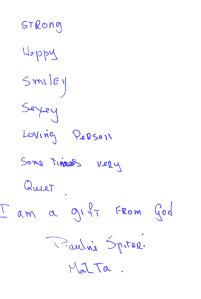 STRONG
Happy
Smiley
Sexey
Loving Person
Some Times very
Quiet.
I am a gift FROM God
Pauline Spiteri
Malta.